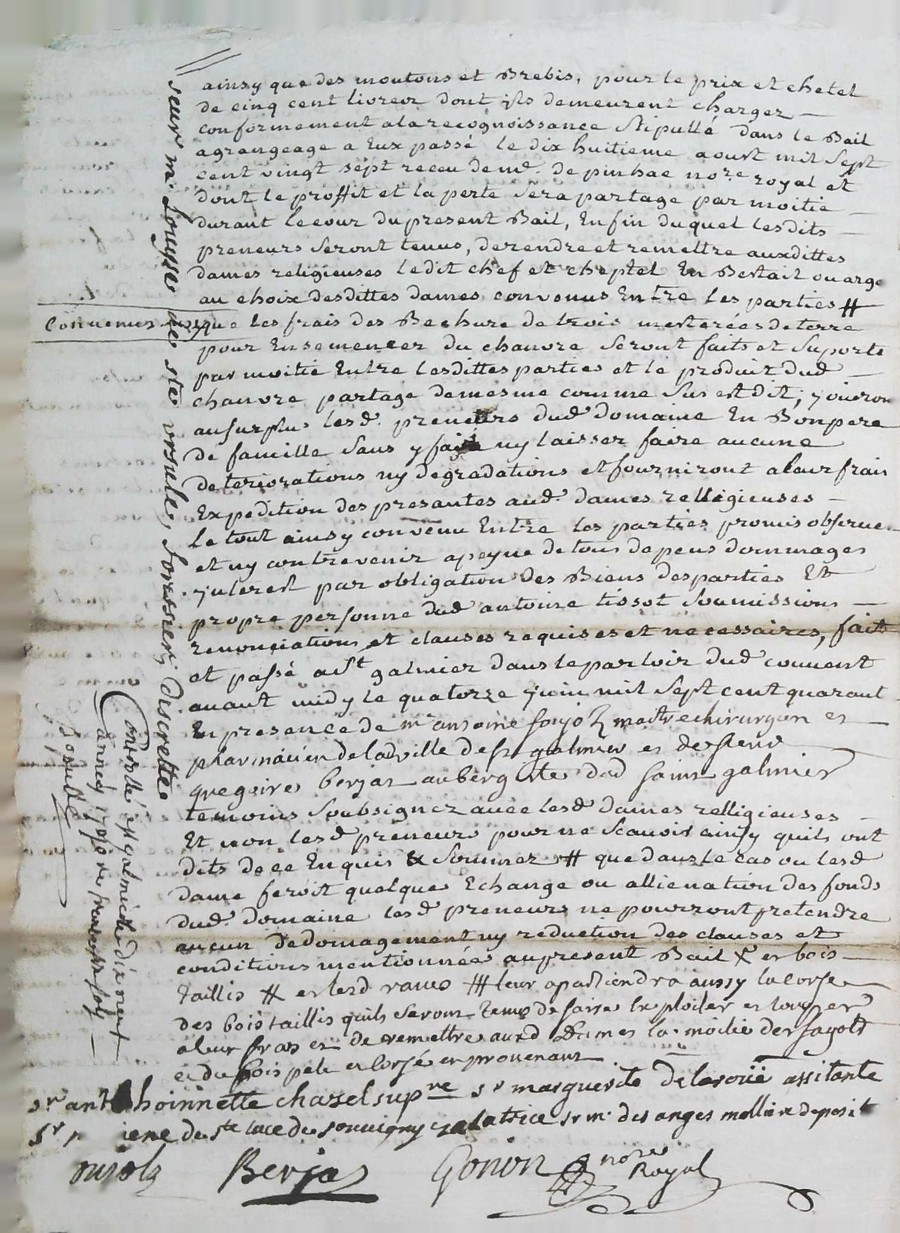 ainsy que des moutons et Brebis, pour le prix et chetel
de cinq cent livres dont ils demeurent chargez
conformement a la recognoissance stipullé dans le Bail
agrangeage a Eux passé le dix huitieme aoust mil sept
cent vingt sept receu de me. de pinhac nore royal et
dont le proffit et la perte sera partage par moitie
durant le cour du present Bail, Enfin duquel lesdits
preneurs seront tenus, de rendre et remettre auxdittes
dames religieuses ledit chef et cheptel En Bestail ou arge
au choix desdittes dames convenus Entre les parties #
Convenus que les frais des Bechure de trois mesterées de terre
pour Ensemencer du chanvre seront faits et suporte
par moitié Entre lesdittes parties et le produit dud
chanvre partage de mesme comme sus est dit, jouiron
au surplus lesd. preneurs dud domaine En Bon pere
de famille sans y faire ny laisser faire aucune
deteriorations ny degradations et fourniront a leur frais
Expedition des presantes aud. dames relligieuses
le tout ainsy convenu Entre les parties promis observe
et ny contrevenir apeyne de tous depens dommages
jnterest par obligation des Biens des parties Et
propre personne dud antoine tissot soumissions
renonciations et clauses requises et necessaires, fait
et passé a st galmier dans le parloir dud couvent
avant midy le quatorze juin mil sept cent quarant
En presence de mr antoine soujolz maitre chirurgien et
pharmacien de lad ville de st galmier et de sieur
gregoire berjas aubergiste dud saint galmier
temoins soubsignez avec lesd dames relligieuses
Et non lesd preneurs pour ne scavoir ainsy quils ont
dits de ce Enquis & sommez # que dans le cas ou lesd
dame feroit quelque Echange ou allienation des fonds
dud domaine lesd preneurs ne pourront pretendre
aucun dedomagement ny reduction des clauses et
conditions mentionnées au present Bail x et bois
taillis # et lesd # leur apartiendra aussy
des bois taillis quils seront tenus de faire Exploiter et
a leur frais et de remettre auxd dames la moitie des fagots
et du bois pele et en provenant
sr anthoinnette chazel supre sr marguerite delaroüe assitante
sr de ste luce de souvigny zelatrice sr m. des anges molliere deposit
oujolz Berjas Gonon nore Royal
seur m. de ste ursule, discrette
Controllé a st galmier le dix neuf